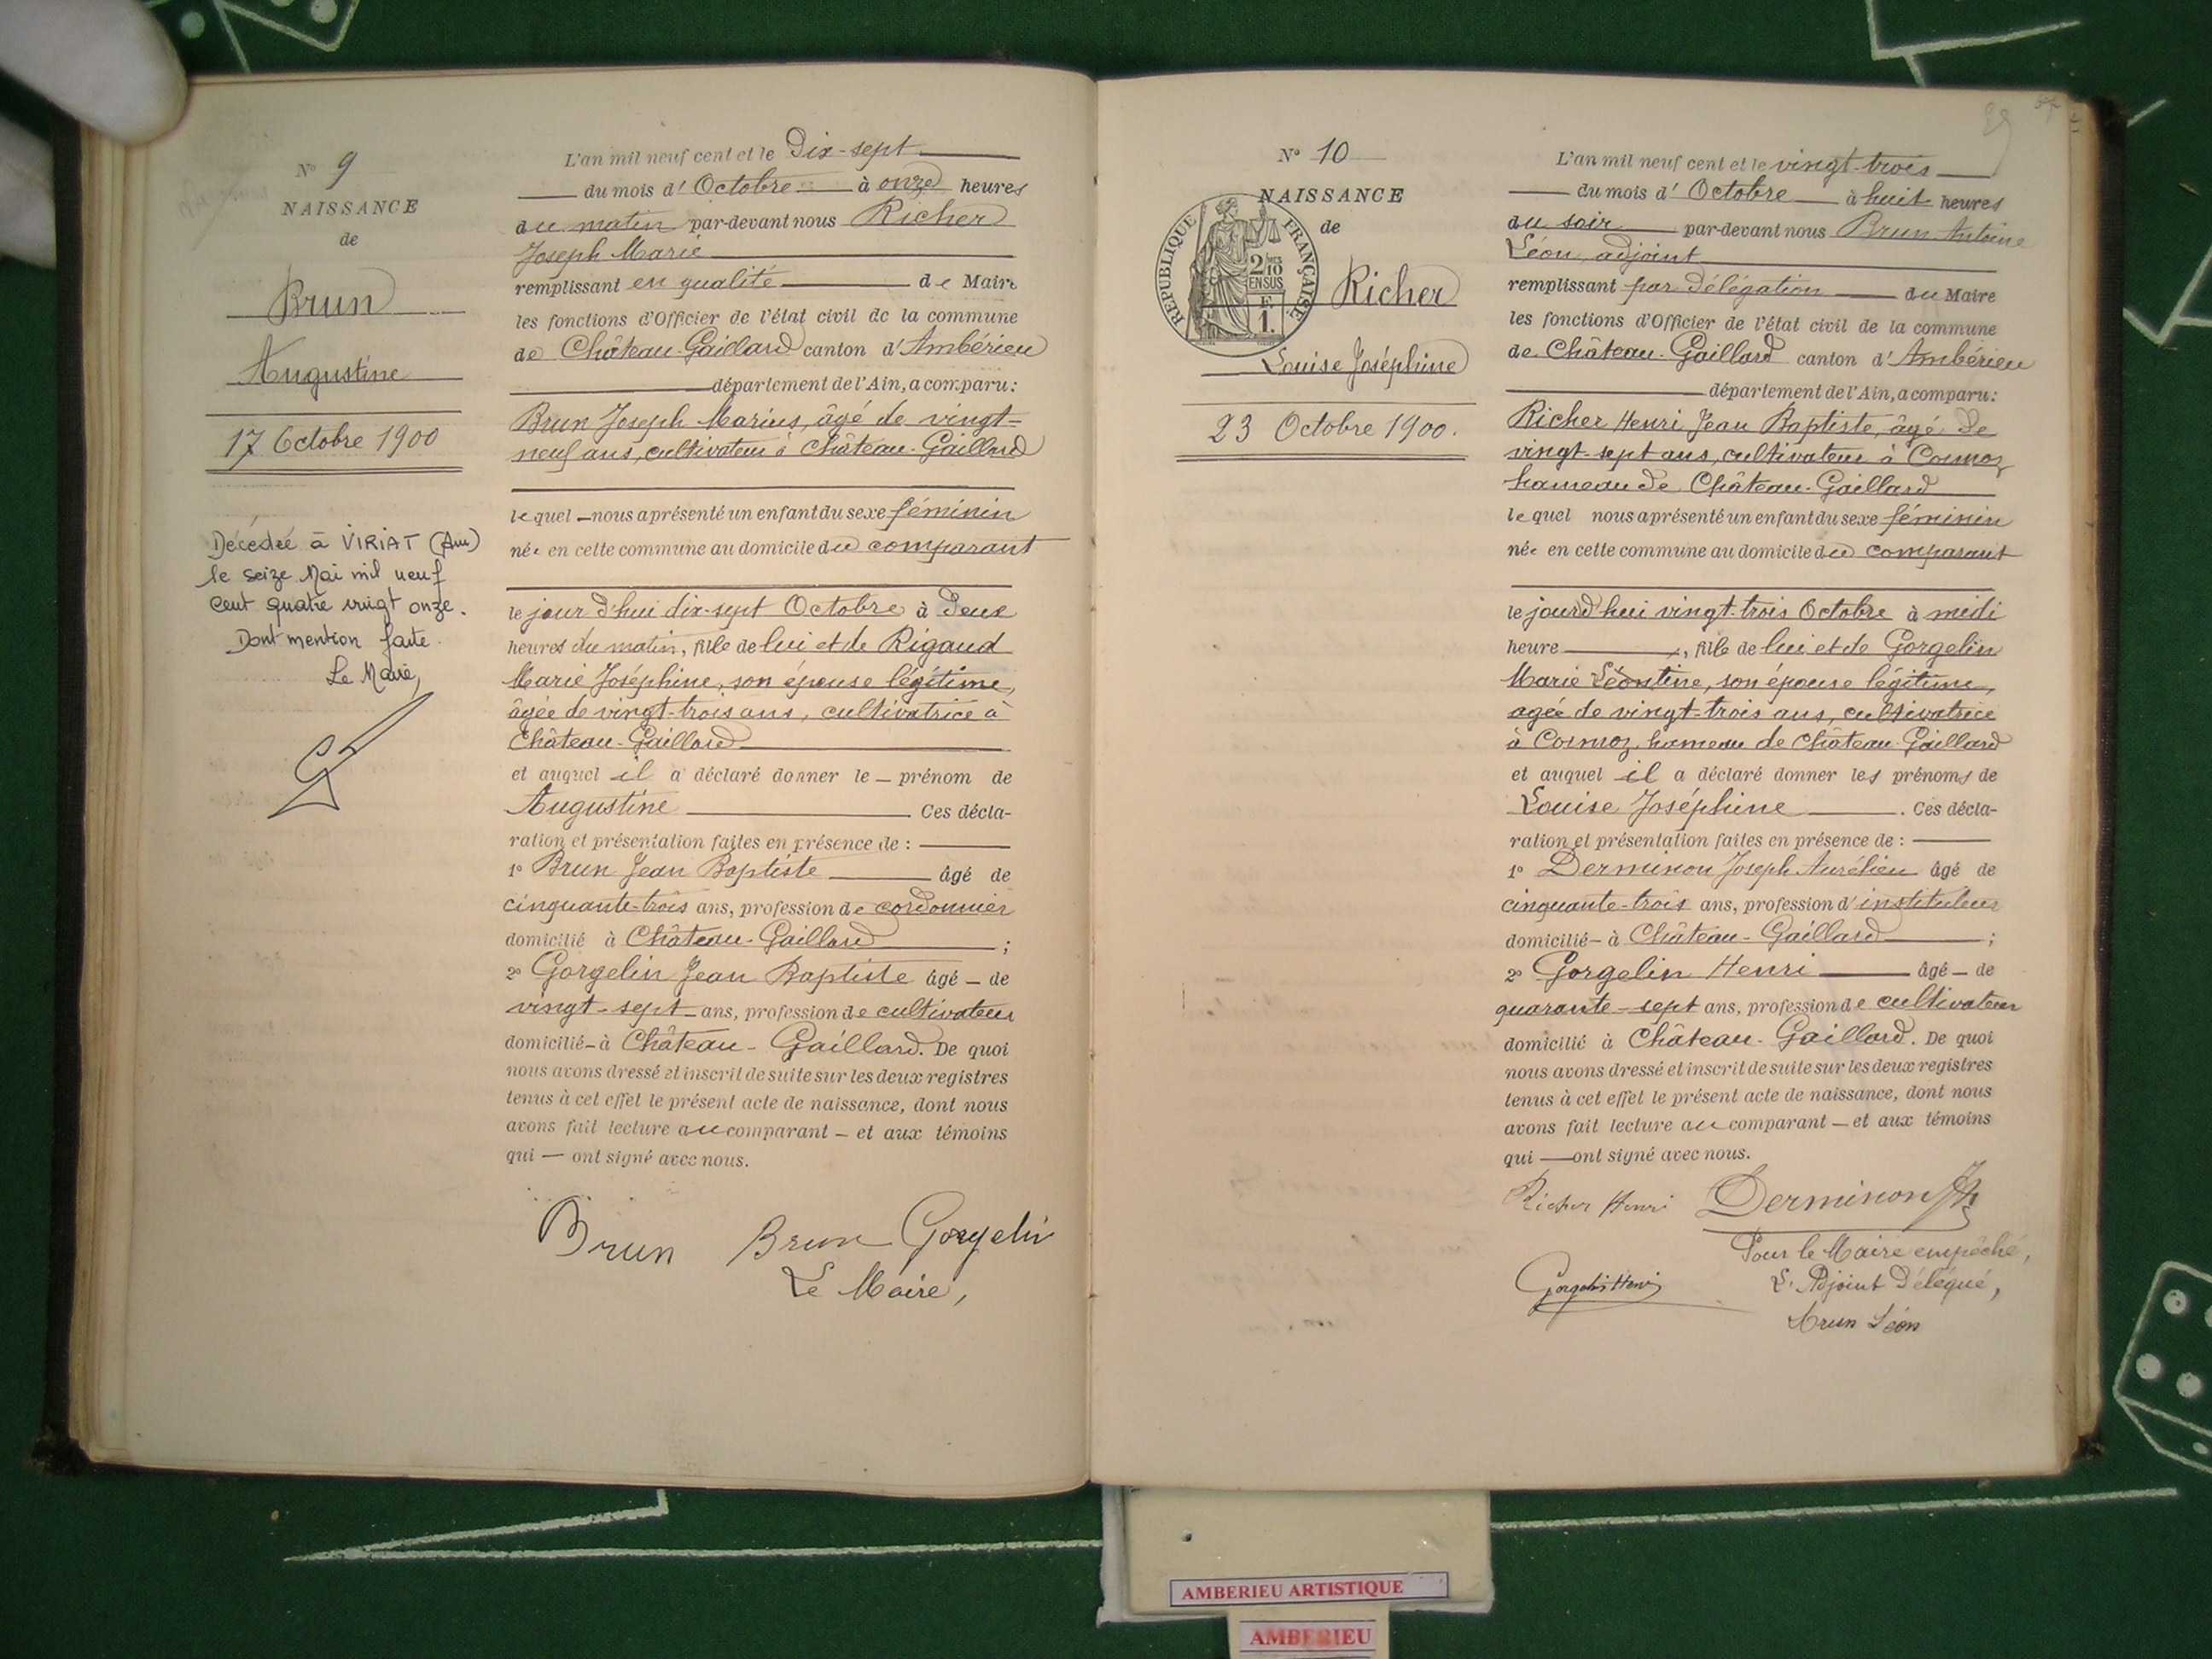 N° 9
NAISSANCE
de
Brun
Augustine
17 Octobre 1900
Décédée à VIRIAT (Ain)
le seize Mai mil neuf
cent quatre vingt onze.
Dont mention faite.
Le Maire,
L'an mil neuf cent et le Dix-sept
du mois d'Octobre à onze heures
du matin par-devant nous Richer
Joseph Marie
remplissant en qualité de Maire
les fonctions d'Officier de l'état civil de la commune
de Château-Gaillard canton d'Ambérieu
département de l'Ain, a comparu:
Brun Joseph Marius, âgé de vingt-
neuf ans, cultivateur à Château-Gaillard
lequel nous a présenté un enfant du sexe féminin
née en cette commune au domicile du comparant
le jourd'hui dix-sept Octobre à deux
heures du matin, fille de lui et de Rigaud
Marie Joséphine, son épouse légitime,
âgée de vingt-trois ans, cultivatrice à
Château-Gaillard
et auquel il a déclaré donner le prénom de
Augustine Ces décla-
ration et présentation faites en présence de :
1° Brun Jean Baptiste âgé de
cinquante-trois ans, profession de cordonnier
domicilié à Château-Gaillard ;
2° Gorgelin Jean Baptiste âgé de
vingt-sept ans, profession de cultivateur
domicilié à Château-Gaillard. De quoi
nous avons dressé et inscrit de suite sur les deux registres
tenus à cet effet le présent acte de naissance, dont nous
avons fait lecture au comparant et aux témoins
qui ont signé avec nous.
Brun Brun Gorgelin
Le Maire,
N° 10
NAISSANCE
de
RÉPUBLIQUE FRANÇAISE
2/10
EN SUS
F.
1.
Richer
Louise Joséphine
23 Octobre 1900.
L'an mil neuf cent et le vingt-trois
du mois d'Octobre à huit heures
du soir par-devant nous Brun Antoine
Léon, adjoint
remplissant par délégation du Maire
les fonctions d'Officier de l'état civil de la commune
de Château-Gaillard canton d'Ambérieu
département de l'Ain, a comparu:
Richer Henri Jean Baptiste, âgé de
vingt-sept ans, cultivateur à Cormoz
hameau de Château-Gaillard
lequel nous a présenté un enfant du sexe féminin
née en cette commune au domicile du comparant
le jourd'hui vingt-trois Octobre à midi
heure , fille de lui et de Gorgelin
Marie Léontine, son épouse légitime,
agée de vingt-trois ans, cultivatrice
à Cormoz, hameau de Château-Gaillard
et auquel il a déclaré donner les prénoms de
Louise Joséphine . Ces décla-
ration et présentation faites en présence de :
1° Derminon Joseph Aurélien âgé de
cinquante-trois ans, profession d'instituteur
domicilié à Château-Gaillard ;
2° Gorgelin Henri âgé de
quarante-sept ans, profession de cultivateur
domicilié à Château-Gaillard. De quoi
nous avons dressé et inscrit de suite sur les deux registres
tenus à cet effet le présent acte de naissance, dont nous
avons fait lecture au comparant et aux témoins
qui ont signé avec nous.
Richer Henri Derminon
Pour le Maire empêché,
Gorgelin Henri L'Adjoint Délégué,
Brun Léon
AMBERIEU ARTISTIQUE
AMBERIEU